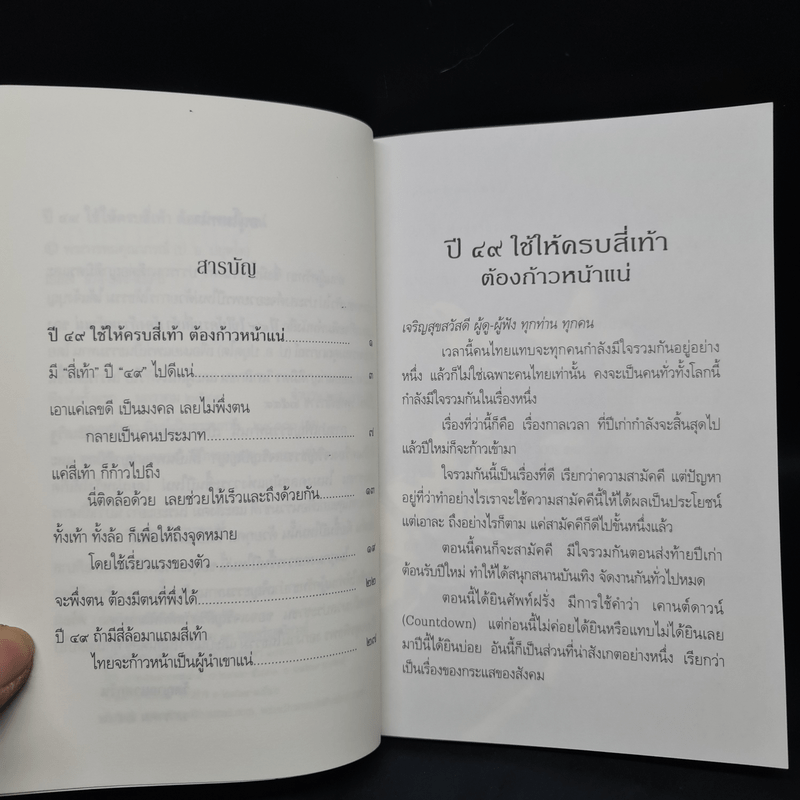 สารบัญ
ปี ๔๙ ใช้ให้ครบสี่เท้า ต้องก้าวหน้าแน่.................. ๑
มี “สี่เท้า” ปี “๔๙” ไปดีแน่.................. ๓
เอาแค่เลขดี เป็นมงคล เลยไม่พึ่งตน
กลายเป็นคนประมาท.................. ๗
แค่สี่เท้า ก็ก้าวไปถึง
นี่ติดล้อด้วย เลยช่วยให้เร็วและถึงด้วยกัน........... ๑๓
ทั้งเท้า ทั้งล้อ ก็เพื่อให้ถึงจุดหมาย
โดยใช้เรี่ยวแรงของตัว .................. ๑๙
จะพึ่งตน ต้องมีตนที่พึ่งได้.................. ๒๒
ปี ๔๙ ถ้ามีสี่ล้อมาแถมสี่เท้า
ไทยจะก้าวหน้าเป็นผู้นำเขาแน่.................. ๒๗
ปี ๔๙ ใช้ให้ครบสี่เท้า
ต้องก้าวหน้าแน่
เจริญสุขสวัสดี ผู้ดู-ผู้ฟัง ทุกท่าน ทุกคน
เวลานี้คนไทยแทบจะทุกคนกำลังมีใจรวมกันอยู่อย่าง
หนึ่ง แล้วก็ไม่ใช่เฉพาะคนไทยเท่านั้น คงจะเป็นคนทั่วทั้งโลกนี้
กำลังมีใจรวมกันในเรื่องหนึ่ง
เรื่องที่ว่านี้ก็คือ เรื่องกาลเวลา ที่ปีเก่ากำลังจะสิ้นสุดไป
แล้วปีใหม่ก็จะก้าวเข้ามา
ใจรวมกันนี้เป็นเรื่องที่ดี เรียกว่าความสามัคคี แต่ปัญหา
อยู่ที่ว่าทำอย่างไรเราจะใช้ความสามัคคีนี้ให้ได้ผลเป็นประโยชน์
แต่เอาละ ถึงอย่างไรก็ตาม แค่สามัคคีก็ดีไปขั้นหนึ่งแล้ว
ตอนนี้คนก็จะสามัคคี มีใจรวมกันตอนส่งท้ายปีเก่า
ต้อนรับปีใหม่ ทำให้ได้สนุกสนานบันเทิง จัดงานกันทั่วไปหมด
ตอนนี้ได้ยินศัพท์ฝรั่ง มีการใช้คำว่า เคานต์ดาวน์
(Countdown) แต่ก่อนนี้ไม่ค่อยได้ยินหรือแทบไม่ได้ยินเลย
มาปีนี้ได้ยินบ่อย อันนี้ก็เป็นส่วนที่น่าสังเกตอย่างหนึ่ง เรียกว่า
เป็นเรื่องของกระแสของสังคม